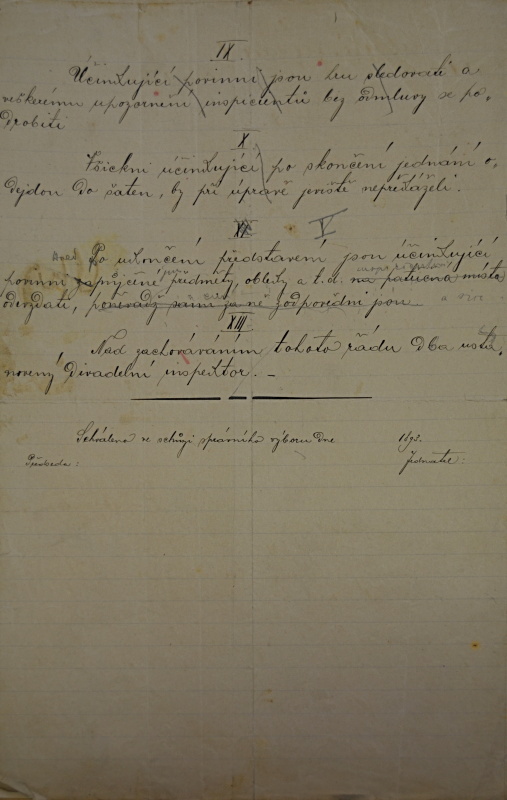 IX.
Účinkující povinni jsou hru sledovati a
veškerému upozornění inspicientů bez odmluvy se po-
drobiti
X
Všickni účinkující po skončení jednání o-
dejdou do šaten, by při úpravě jeviště nepřekáželi.
V
Po ukončení představení jsou účinkující
povinni zapůjčené předměty, obleky a t. d. na patřičná místa
odevzdati, poněvadž sami za ně zodpovědni jsou
XIII
Nad zachováváním tohoto řádu dba usta-
novený divadelní inspektor. –
Schváleno ve schůzi správního výboru dne 189 .
Předseda: Jednatel: